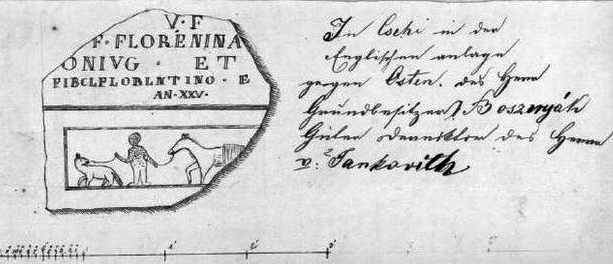 V · F
F · FLORENINA
ONIVG · ET
FIBCLFLORLNTINO · E
AN · XXV ·
In Csehi in der
Englischen anlage
gegen Osten. des Herrn
Grundbesitzers Bosznyák
Güter des Herrn
v: Jankovith